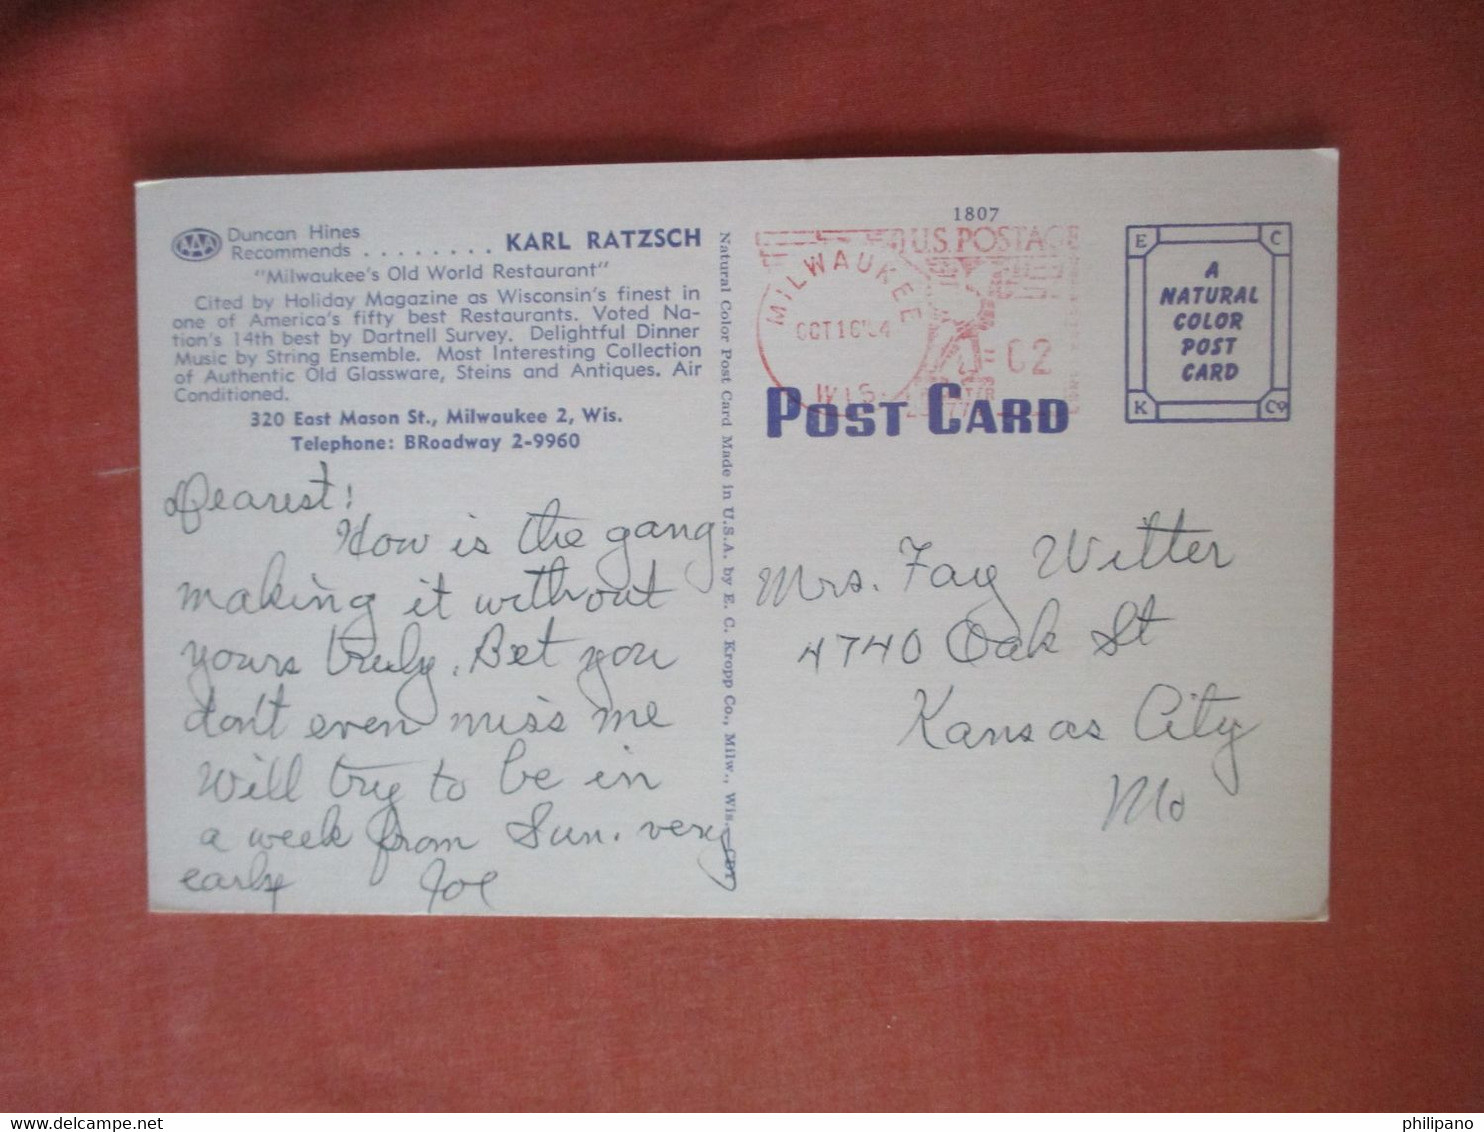 AAA
Duncan Hines
Recommends ........ KARL RATZSCH
"Milwaukee's Old World Restaurant"
Cited by Holiday Magazine as Wisconsin's finest in
one of America's fifty best Restaurants. Voted Na-
tion's 14th best by Dartnell Survey. Delightful Dinner
Music by String Ensemble. Most Interesting Collection
of Authentic Old Glassware, Steins and Antiques. Air
Conditioned.
320 East Mason St., Milwaukee 2, Wis.
Telephone: BRoadway 2-9960
Dearest!
How is the gang
making it without
yours truly. Bet you
don't even miss me
Will try to be in
a week from Sun. very
early Joe
Natural Color Post Card Made in U.S.A. by E. C. Kropp Co., Milw., Wis.—CDT
1807
U.S. POSTAGE
MILWAUKEE
OCT 16
WIS.
02
POST CARD
E C
A
NATURAL
COLOR
POST
CARD
K Co
Mrs. Fay Witter
4740 Oak St
Kansas City
Mo
philipano